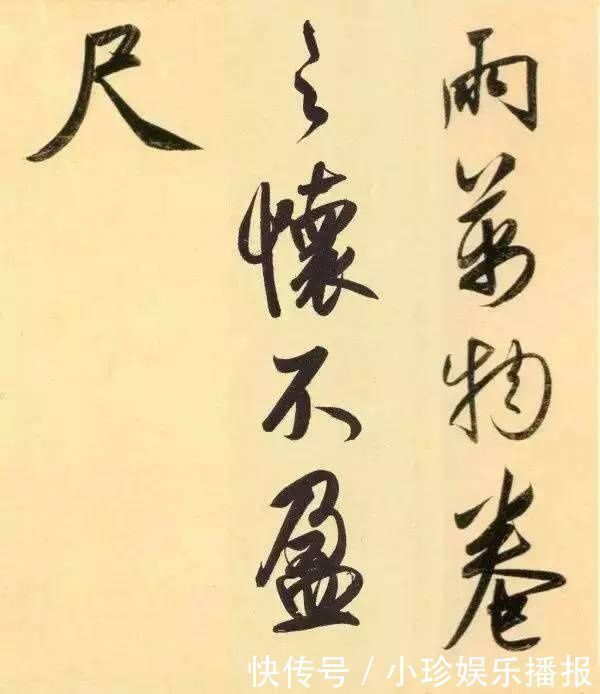 雨萬物卷
之懷不盈
尺
快传号/小珍娱乐播报